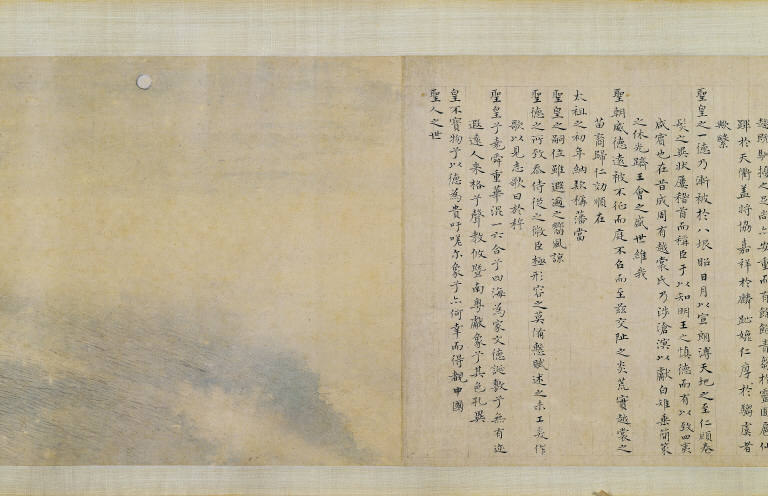 於天衢蓋將協嘉祥於麟趾嬗仁厚於騶虞者
歟繄
聖皇之一德乃漸被於八埏昭日月以宣朗溥天地之至仁頤卷
髮之異狀屢稽首而稱臣于以知明王之慎德而有以致四夷
咸賓也在昔成周有越裳氏乃涉滄溟以獻白雉乗簡策
之休光躋王會之盛世維我
聖朝威德遠被不征而庭不召而至茲交阯之炎荒實越裳之
苗裔歸仁効順在
太祖之初年納欵稱藩當
聖皇之嗣位雖遐邇之嚮風諒
聖德之所致忝侍從之微臣極形容之莫備慙賦述之未工爰作
歌以見志歌曰於穆
聖皇兮堯舜重華混一六合兮四海為家文德誕敷兮無有迩
遐遠人来格兮聲教攸暨南粤獻象兮其色孔異
皇不寳物兮以德為貴吁嗟尔象兮亦何幸而得覩中國
聖人之世